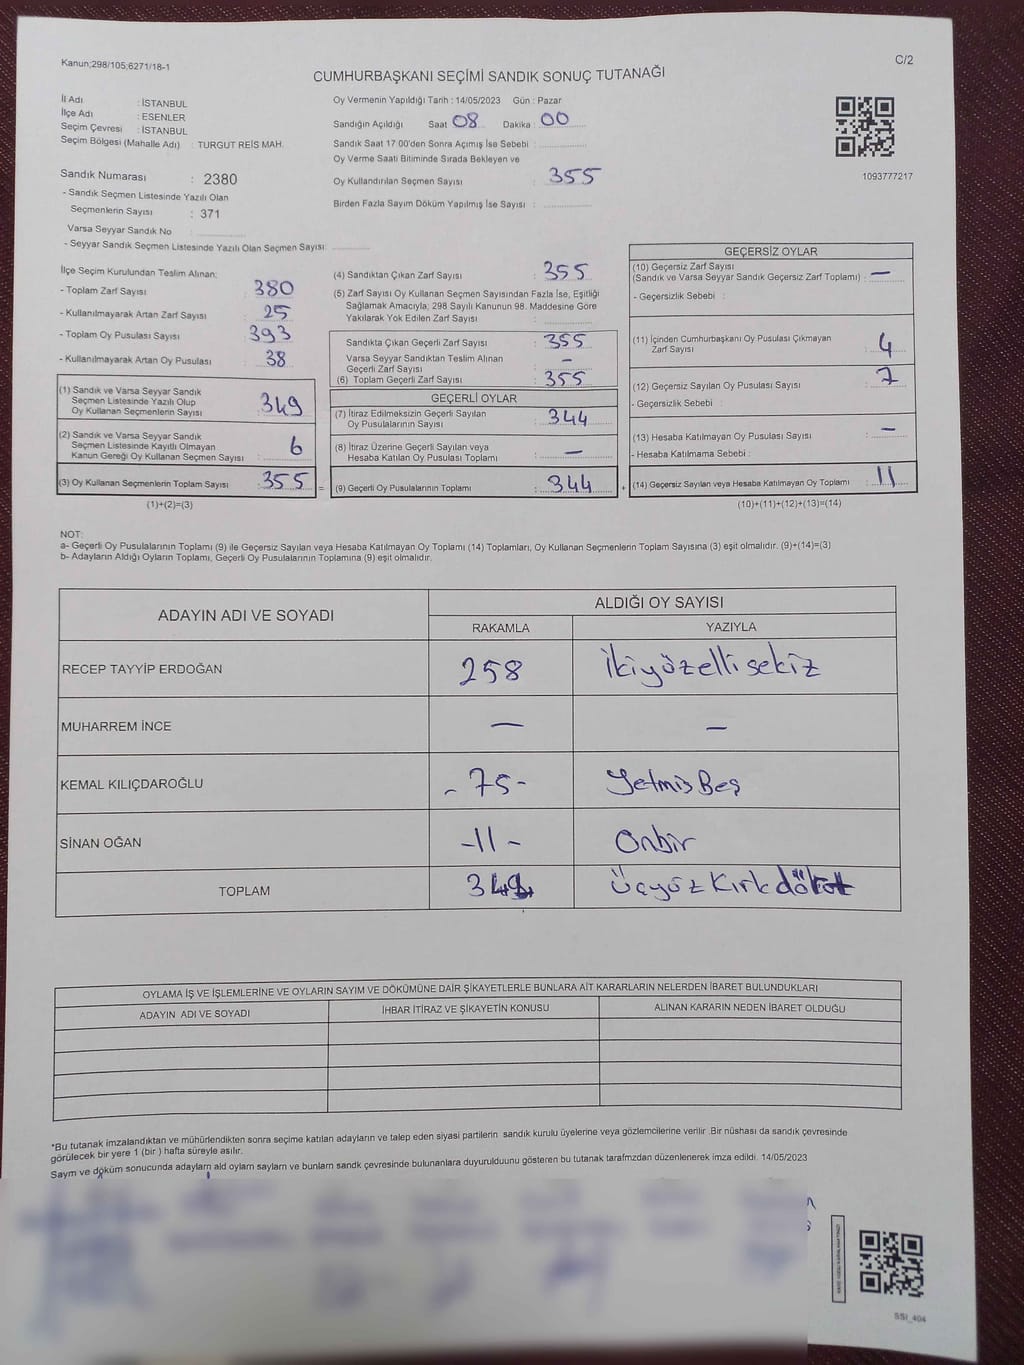 Kanun;298/105;6271/18-1
C/2
CUMHURBAŞKANI SEÇİMİ SANDIK SONUÇ TUTANAĞI
İl Adı : İSTANBUL
İlçe Adı : ESENLER
Seçim Çevresi : İSTANBUL
Seçim Bölgesi (Mahalle Adı) : TURGUT REİS MAH.
Sandık Numarası : 2380
- Sandık Seçmen Listesinde Yazılı Olan
Seçmenlerin Sayısı : 371
Varsa Seyyar Sandık No :
- Seyyar Sandık Seçmen Listesinde Yazılı Olan Seçmen Sayısı:
Oy Vermenin Yapıldığı Tarih : 14/05/2023 Gün : Pazar
Sandığın Açıldığı Saat 08 Dakika : 00
Sandık Saat 17:00'den Sonra Açımış İse Sebebi :
Oy Verme Saati Bitiminde Sırada Bekleyen ve
Oy Kullandırılan Seçmen Sayısı : 355
Birden Fazla Sayım Döküm Yapılmış İse Sayısı :
1093777217
İlçe Seçim Kurulundan Teslim Alınan:
- Toplam Zarf Sayısı : 380
- Kullanılmayarak Artan Zarf Sayısı : 25
- Toplam Oy Pusulası Sayısı : 393
- Kullanılmayarak Artan Oy Pusulası : 38
(1) Sandık ve Varsa Seyyar Sandık
Seçmen Listesinde Yazılı Olup
Oy Kullanan Seçmenlerin Sayısı : 349
(2) Sandık ve Varsa Seyyar Sandık
Seçmen Listesinde Kayıtlı Olmayan
Kanun Gereği Oy Kullanan Seçmen Sayısı : 6
(3) Oy Kullanan Seçmenlerin Toplam Sayısı : 355
(1)+(2)=(3)
(4) Sandıktan Çıkan Zarf Sayısı : 355
(5) Zarf Sayısı Oy Kullanan Seçmen Sayısından Fazla İse, Eşitliği
Sağlamak Amacıyla; 298 Sayılı Kanunun 98. Maddesine Göre
Yakılarak Yok Edilen Zarf Sayısı :
Sandıkta Çıkan Geçerli Zarf Sayısı : 355
Varsa Seyyar Sandıktan Teslim Alınan
Geçerli Zarf Sayısı : —
(6) Toplam Geçerli Zarf Sayısı : 355
GEÇERLİ OYLAR
(7) İtiraz Edilmeksizin Geçerli Sayılan
Oy Pusulalarının Sayısı : 344
(8) İtiraz Üzerine Geçerli Sayılan veya
Hesaba Katılan Oy Pusulası Toplamı : —
= (9) Geçerli Oy Pusulalarının Toplamı : 344 +
GEÇERSİZ OYLAR
(10) Geçersiz Zarf Sayısı
(Sandık ve Varsa Seyyar Sandık Geçersiz Zarf Toplamı) : —
- Geçersizlik Sebebi :
(11) İçinden Cumhurbaşkanı Oy Pusulası Çıkmayan
Zarf Sayısı : 4
(12) Geçersiz Sayılan Oy Pusulası Sayısı : 7
- Geçersizlik Sebebi :
(13) Hesaba Katılmayan Oy Pusulası Sayısı : —
- Hesaba Katılmama Sebebi :
(14) Geçersiz Sayılan veya Hesaba Katılmayan Oy Toplamı : 11
(10)+(11)+(12)+(13)=(14)
NOT:
a- Geçerli Oy Pusulalarının Toplamı (9) ile Geçersiz Sayılan veya Hesaba Katılmayan Oy Toplamı (14) Toplamları, Oy Kullanan Seçmenlerin Toplam Sayısına (3) eşit olmalıdır. (9)+(14)=(3)
b- Adayların Aldığı Oyların Toplamı, Geçerli Oy Pusulalarının Toplamına (9) eşit olmalıdır.
ADAYIN ADI VE SOYADI
ALDIĞI OY SAYISI
RAKAMLA YAZIYLA
RECEP TAYYİP ERDOĞAN 258 ikiyüzelli sekiz
MUHARREM İNCE — —
KEMAL KILIÇDAROĞLU - 75 - YetmişBeş
SİNAN OĞAN - 11 - Onbir
TOPLAM 344 ÜçyüzKırkdört
OYLAMA İŞ VE İŞLEMLERİNE VE OYLARIN SAYIM VE DÖKÜMÜNE DAİR ŞİKAYETLERLE BUNLARA AİT KARARLARIN NELERDEN İBARET BULUNDUKLARI
ADAYIN ADI VE SOYADI İHBAR İTİRAZ VE ŞİKAYETİN KONUSU ALINAN KARARIN NEDEN İBARET OLDUĞU
*Bu tutanak imzalandıktan ve mühürlendikten sonra seçime katılan adayların ve talep eden siyasi partilerin sandık kurulu üyelerine veya gözlemcilerine verilir .Bir nüshası da sandık çevresinde
görülecek bir yere 1 (bir ) hafta süreyle asılır.
Sayım ve döküm sonucunda adayların ald oyların sayların ve bunların sandk çevresinde bulunanlara duyurulduunu gösteren bu tutanak tarafmzdan düzenlenerek imza edildi. 14/05/2023
SSI_404